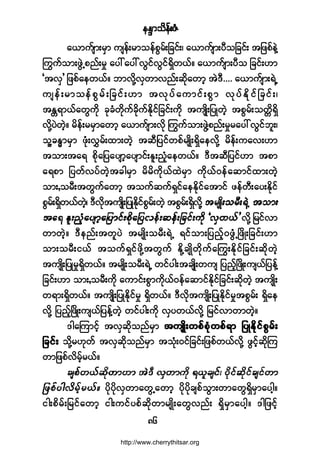 နန္ဒာသိန်းဇံ
ယောက်ျားမှာ ကျန်းမာသန်စွမ်းခြင်း၊ ယောက်ျားပီသခြင်း အဖြစ်နဲ့
ကြွက်သားဖွဲ့စည်းမှု ပေါ်ပေါ်လွင်လွင်ရှိတယ်။ ယောက်ျားပီသ ခြင်းဟာ
‘အလှ’ ဖြစ်နေတယ်။ ဘာလို့လှတာလည်းဆိုတော့ အဲဒီ.... ယောက်ျားရဲ့
ကျန်းမာသန်စွမ်းခြင်းဟာ အလုပ်ကောင်းစွာ လုပ်နိုင်ခြင်း၊
အန္တရာယ်တွေကို ခုခံတိုက်ခိုက်နိုင်ခြင်းကို အကျိုးပြုတဲ့ အစွမ်းသတ္တိရှိ
လို့ပဲတဲ့။ မိန်းမမှာတော့ ယောက်ျားလို ကြွက်သားဖွဲ့စည်းမှုမပေါ်လွင်ဘူး။
သူ့ခန္ဓာမှာ ဖုံးလွှမ်းထားတဲ့ အဆီပြင်တစ်မျိုးရှိနေလို့ မိန်းကလေးဟာ
အသားအရေ စိုပြေပျော့ပျောင်းနူးညံ့နေတယ်။ ဒီအဆီပြင်ဟာ အစာ
ရေစာ ပြတ်လပ်တဲ့အခါမှာ မိမိကိုယ်ထဲမှာ ကိုယ်ဝန်ဆောင်ထားတဲ့
သား,သမီးအတွက်တော့ အသက်ဆက်ရှင်နေနိုင်အောင် ဖန်တီးပေးနိုင်
စွမ်းရှိတယ်တဲ့၊ ဒီလိုအကျိုးပြုနိုင်စွမ်းတဲ့ အစွမ်းရှိလို့ အမျိုးသမီးရဲ့ အသား
အရေ နူးညံ့ပျော့ပြောင်းစိုပြေလန်းဆန်းခြင်းကို ‘လှတယ်’ လို့ မြင်လာ
တာတဲ့။ ဒီနည်းအတူပဲ အမျိုးသမီးရဲ့ ရင်သားပြည့်ဝဖွံ့ဖြိုးခြင်းဟာ
သားသမီးငယ် အသက်ရှင်ဖို့အတွက် နို့ချိုတိုက်ကြွေးနိုင်ခြင်းဆိုတဲ့
အကျိုးပြုမှုရှိတယ်။ အမျိုးသမီးရဲ့ တင်ပါးအချိုးတကျ ပြည့်ဖြိုးကျယ်ပြန့်
ခြင်းဟာ သား,သမီးကို ကောင်းစွာကိုယ်ဝန်ဆောင်နိုင်ခြင်းဆိုတဲ့ အကျိုး
တရားရှိတယ်။ အကျိုးပြုနိုင်မှု ရှိတယ်။ ဒီလိုအကျိုးပြုနိုင်မှုအစွမ်း ရှိနေ
လို့ ပြည့်ဖြိုးကျယ်ပြန့်တဲ့ တင်ပါးကို လှပတယ်လို့ မြင်လာတာတဲ့။
ဒါကြောင့် အလှဆိုသည်မှာ အကျိုးတစ်စုံတစ်ရာ ပြုနိုင်စွမ်း
ခြင်း သို့မဟုတ် အလှဆိုသည်မှာ အသုံးဝင်ခြင်းဖြစ်တယ်လို့ ဖွင့်ဆိုကြ
တာဖြစ်လိမ့်မယ်။
ချစ်တယ်ဆိုတာဟာ အဲဒီ လှတာကို ရယူချင်၊ ပိုင်ဆိုင်ချင်တာ
ဖြစ်ပါလိမ့်မယ်။ ပိုပိုလှတာတွေ့တော့ ပိုပိုချစ်သွားတာတွေရှိမှာပေါ့။
ငါးစိမ်းမြင်တော့ ငါးကင်ပစ်ဆိုတာမျိုးတွေလည်း ရှိမှာပေါ့။ ဒါဖြင့်
၈၆
http://www.cherrythitsar.org